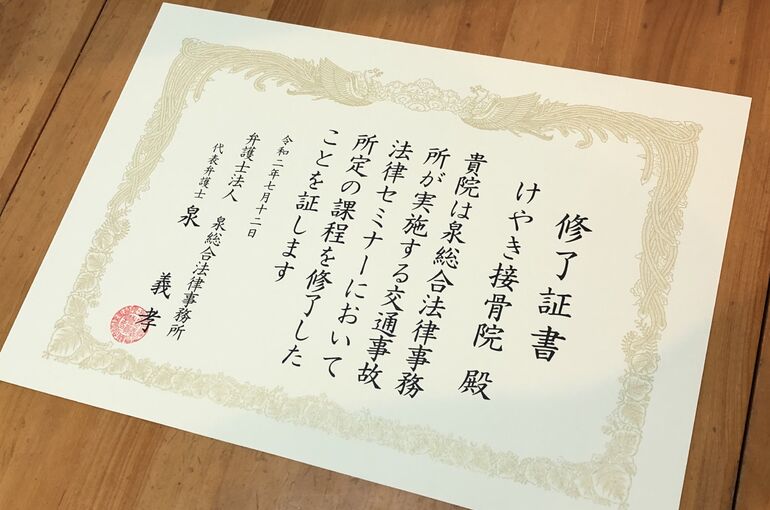 修了証書
けやき接骨院 殿
貴院は泉総合法律事務
所が実施する交通事故
法律セミナーにおいて
所定の課程を修了した
ことを証します
令和二年七月十二日
弁護士法人 泉総合法律事務所
代表弁護士 泉 義孝